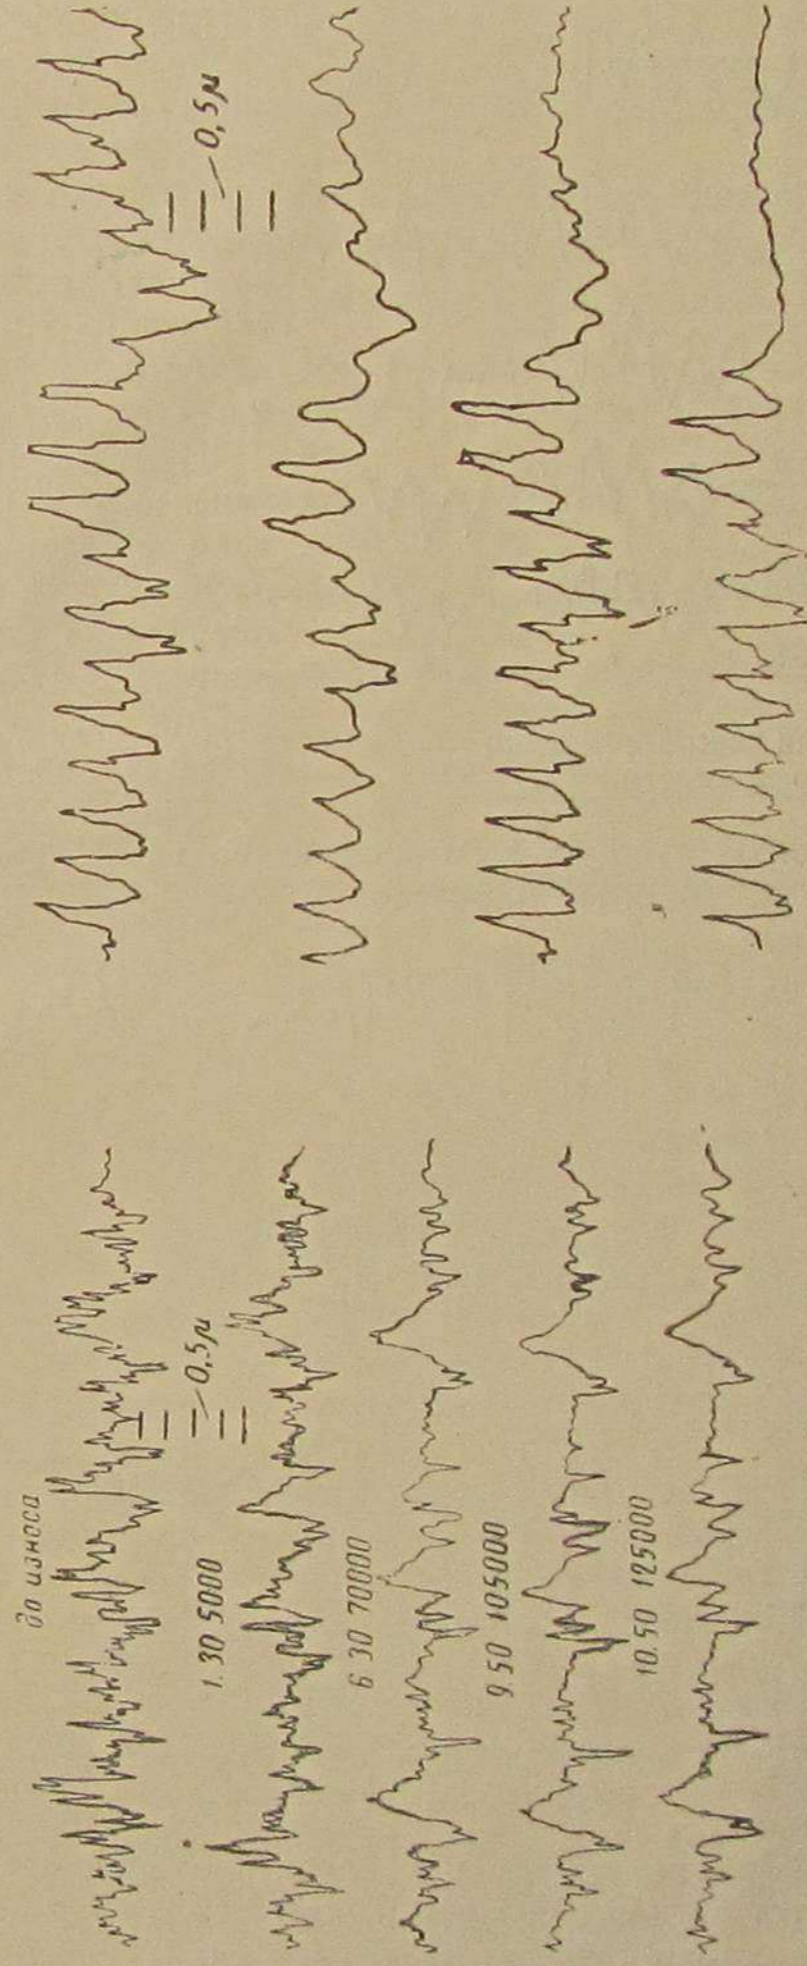 0,5 µ
до износа
0,5 µ
1.30 5000
6 30 70000
9 50 105000
10.50 125000